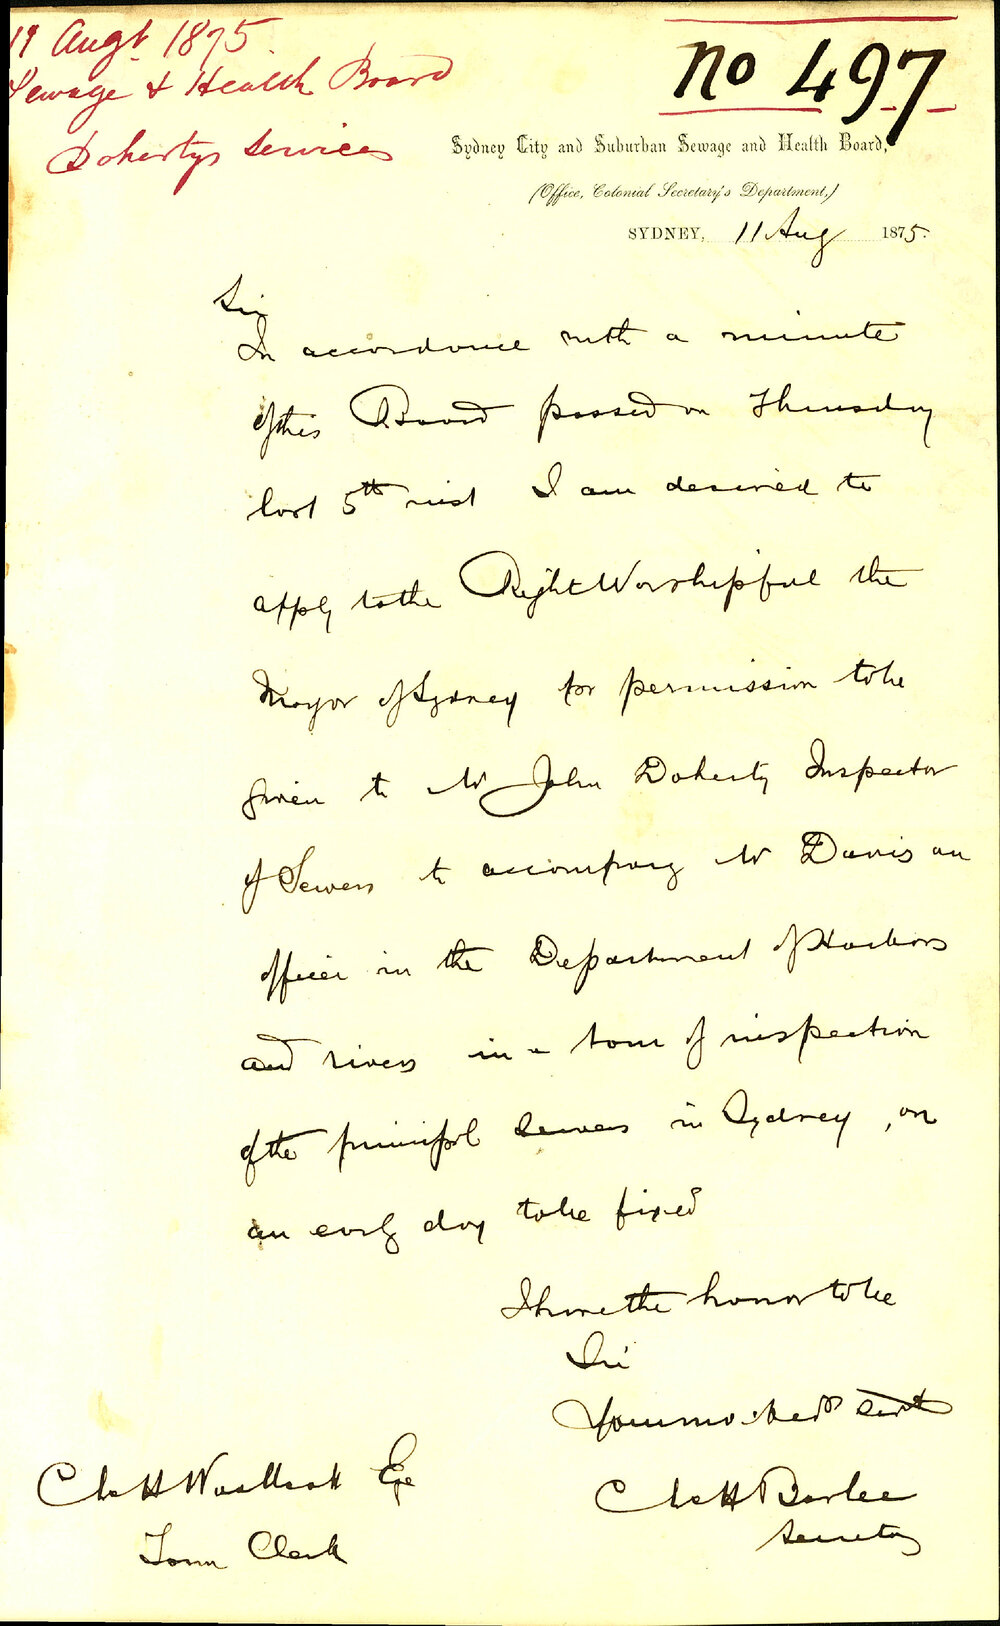 19 Augt 1875.
Sewage & Health Board
Dohertys Services
No 497
Sydney City and Suburban Sewage and Health Board,
(Office, Colonial Secretary's Department,)
SYDNEY, 11 Aug 1875.
Sir
In accordance with a minute
of this Board passed on Thursday
last 5th inst I am desired to
apply to the Right Worshipful the
Mayor of Sydney for permission to be
given to Mr John Doherty Inspector
of Sewers to accompany Mr Davis an
officer in the Department of Harbors
and rivers in a tour of inspection
of the principal sewers in Sydney, on
an early day to be fixed
I have the honor to be
Sir
Your mo. obedt Servt
Chs H Barlee
Secretary
Chs H Woolcott Eqe
Town Clerk